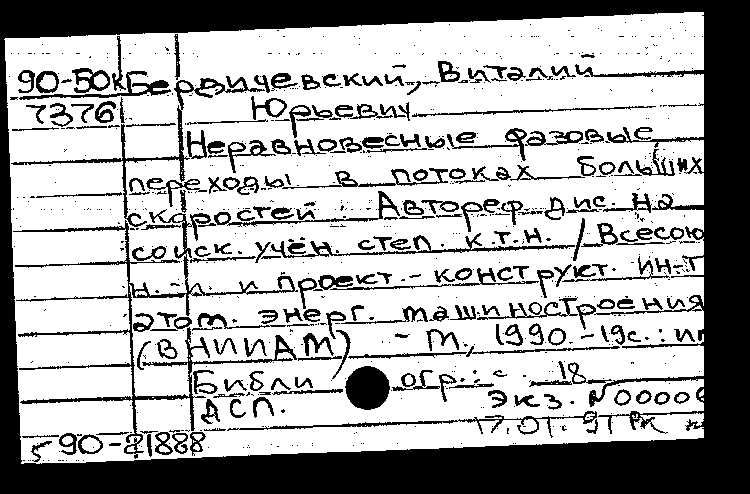 90-50к Бердичевский, Виталий
7376 Юрьевич
Неравновесные фазовые
переходы в потоках больших
скоростей : Автореф. дис. на
соиск. учён. степ. к.т.н. / Всесою
н.-и. и проект.-конструкт. ин-т
атом. энерг. машиностроения
(ВНИИАМ) - М., 1990. - 19с. : ил
Библиогр.: с. 18
ДСП. Экз. N 0000
17.01.91
5 90-21888